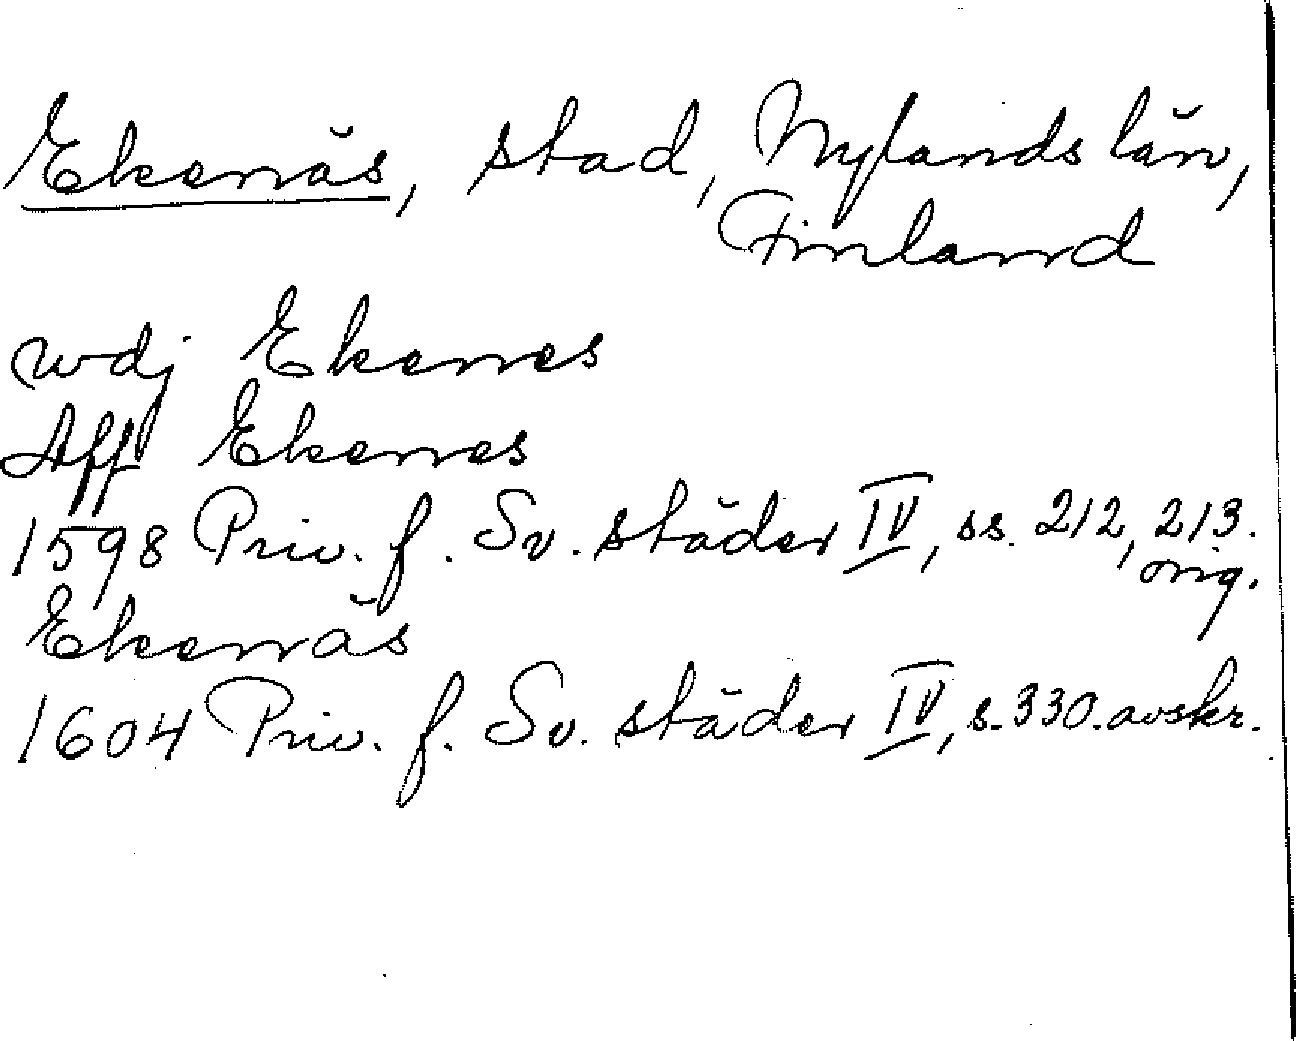 Ekenäs, stad, Nylands län,
Finland
wdj Ekenes
Aff Ekenes
1598 Priv. f. Sv. städer IV, ss. 212, 213.
orig.
Ekenäs
1604 Priv. f. Sv. städer IV, s. 330. avskr.